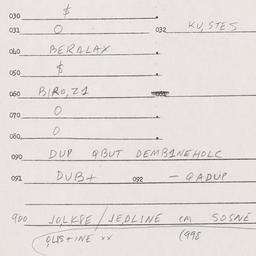 030 $
031 O 032 KU,STES
040 BERALAX
050 $
060 BIRO,Z1
070 O
080 O
090 DUP QBUT DEMBINEHOLC
091 DUB+ 092 - QADUP
900 JO,LKSE/JE,DLINE CM SOSNE
QUS+INE xx (998